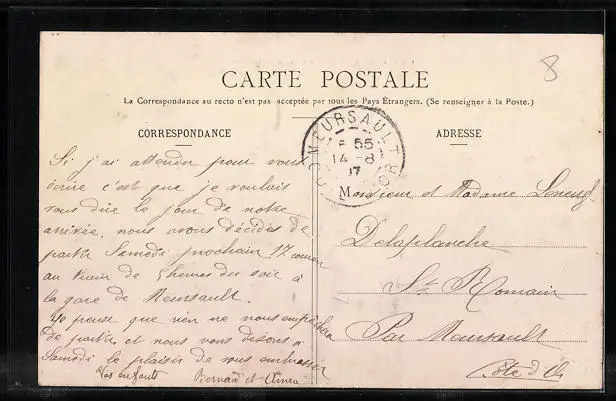 8
CARTE POSTALE
La Correspondance au recto n'est pas acceptée par tous les Pays Étrangers. (Se renseigner à la Poste.)
CORRESPONDANCE
ADRESSE
MEURSAULT
55
14 -8
07
Si j'ai attendu pour vous
écrire c'est que je voulais
vous dire le jour de notre
arrivée, nous avons décidés de
partir Samedi prochain 17 courant
au train de 5 heures du soir à
la gare de Meursault.
Je pense que rien ne nous empêchera
de partir et nous vous disons à
Samedi le plaisir de vous embrasser
Vos enfants
Bernard et
Monsieur et Madame
Delaplanche
St Romain
Par Meursault
Côte d'Or